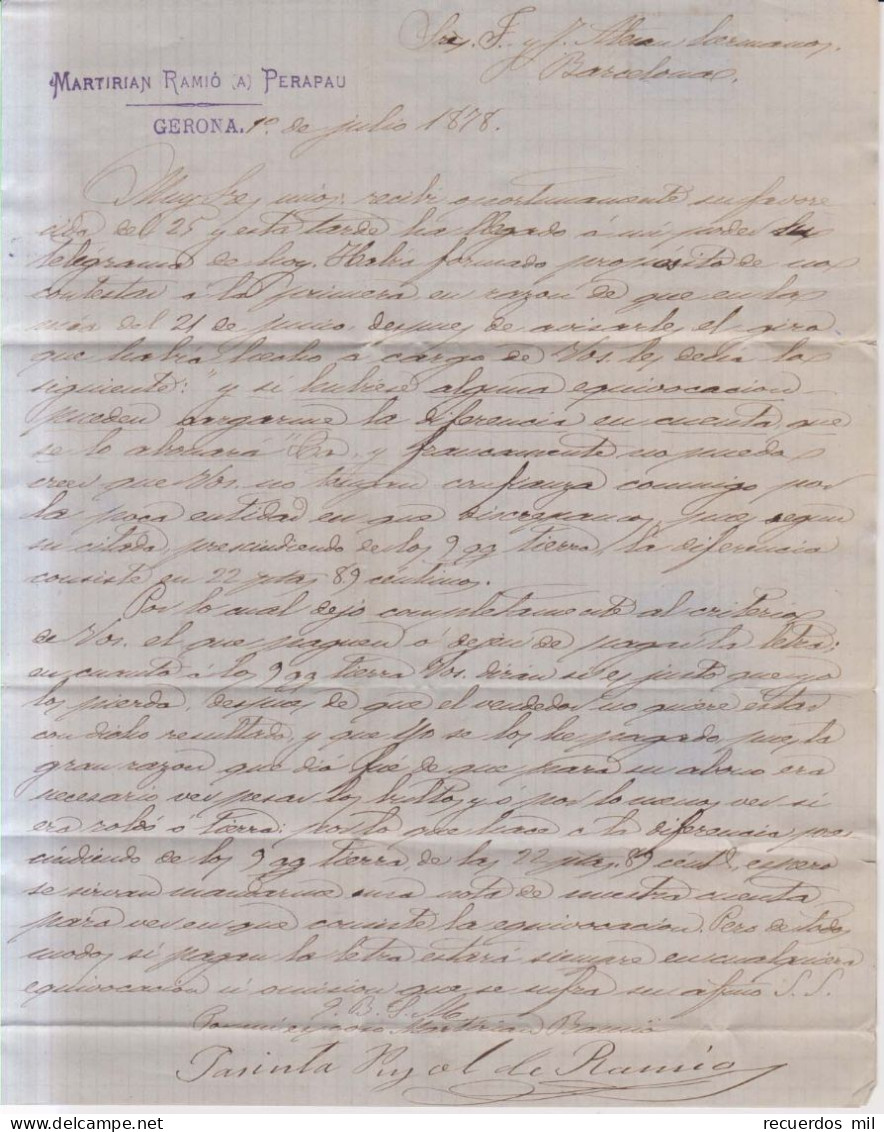 Sres. F. y J. hermanos.
Barcelona.
MARTIRIAN RAMIÓ (A) PERAPAU
GERONA. 1º de julio 1878.
Muy Sres mios: recibi oportunamente su favore
cida del 25 y esta tarde ha llegado á mi poder su
telégrama de hoy. Habia formado propósito de no
contestar á la primera en razon de que en la
mia del 21 de junio, despues de avisarles el giro
que habia hecho á cargo de Vos. les decia lo
siguiente: "y si hubiese alguna equivocacion
pueden cargarme la diferencia en cuenta que
se lo abonará" y francamente no puedo
creer que Vos. no tengan confianza conmigo por
la poca entidad en que discrepamos, pues segun
su citada, prescindiendo de los 9 qq tierra, la diferencia
consiste en 22 ptas 89 centimos.
Por lo cual dejo completamente al criterio
de Vos. el que paguen ó dejen de pagar la letra:
en cuanto á los 9 qq tierra Vos. dirán si es justo que yo
los pierda, despues de que el vendedor no quiere estar
con dicho resultado, y que yo se los he pagado, pues la
gran razon que dió fué de que para su abono era
necesario ver pesar los bultos y ó por lo menos ver si
era ó tierra: por lo que hace á la diferencia pres
cindiendo de los 9 qq tierra, de las 22 ptas. 89 cent. espero
se sirvan mandarme una nota de nuestra cuenta
para ver en que consiste la equivocacion. Pero de todos
modos si pagan la letra estará siempre en cualquiera
equivocacion ú omision que se sufra su afmo S. S.
Q. B. S. M.
Por mi esposo Martirian Ramió
Jasinta Pujol de Ramió
recuerdos mil